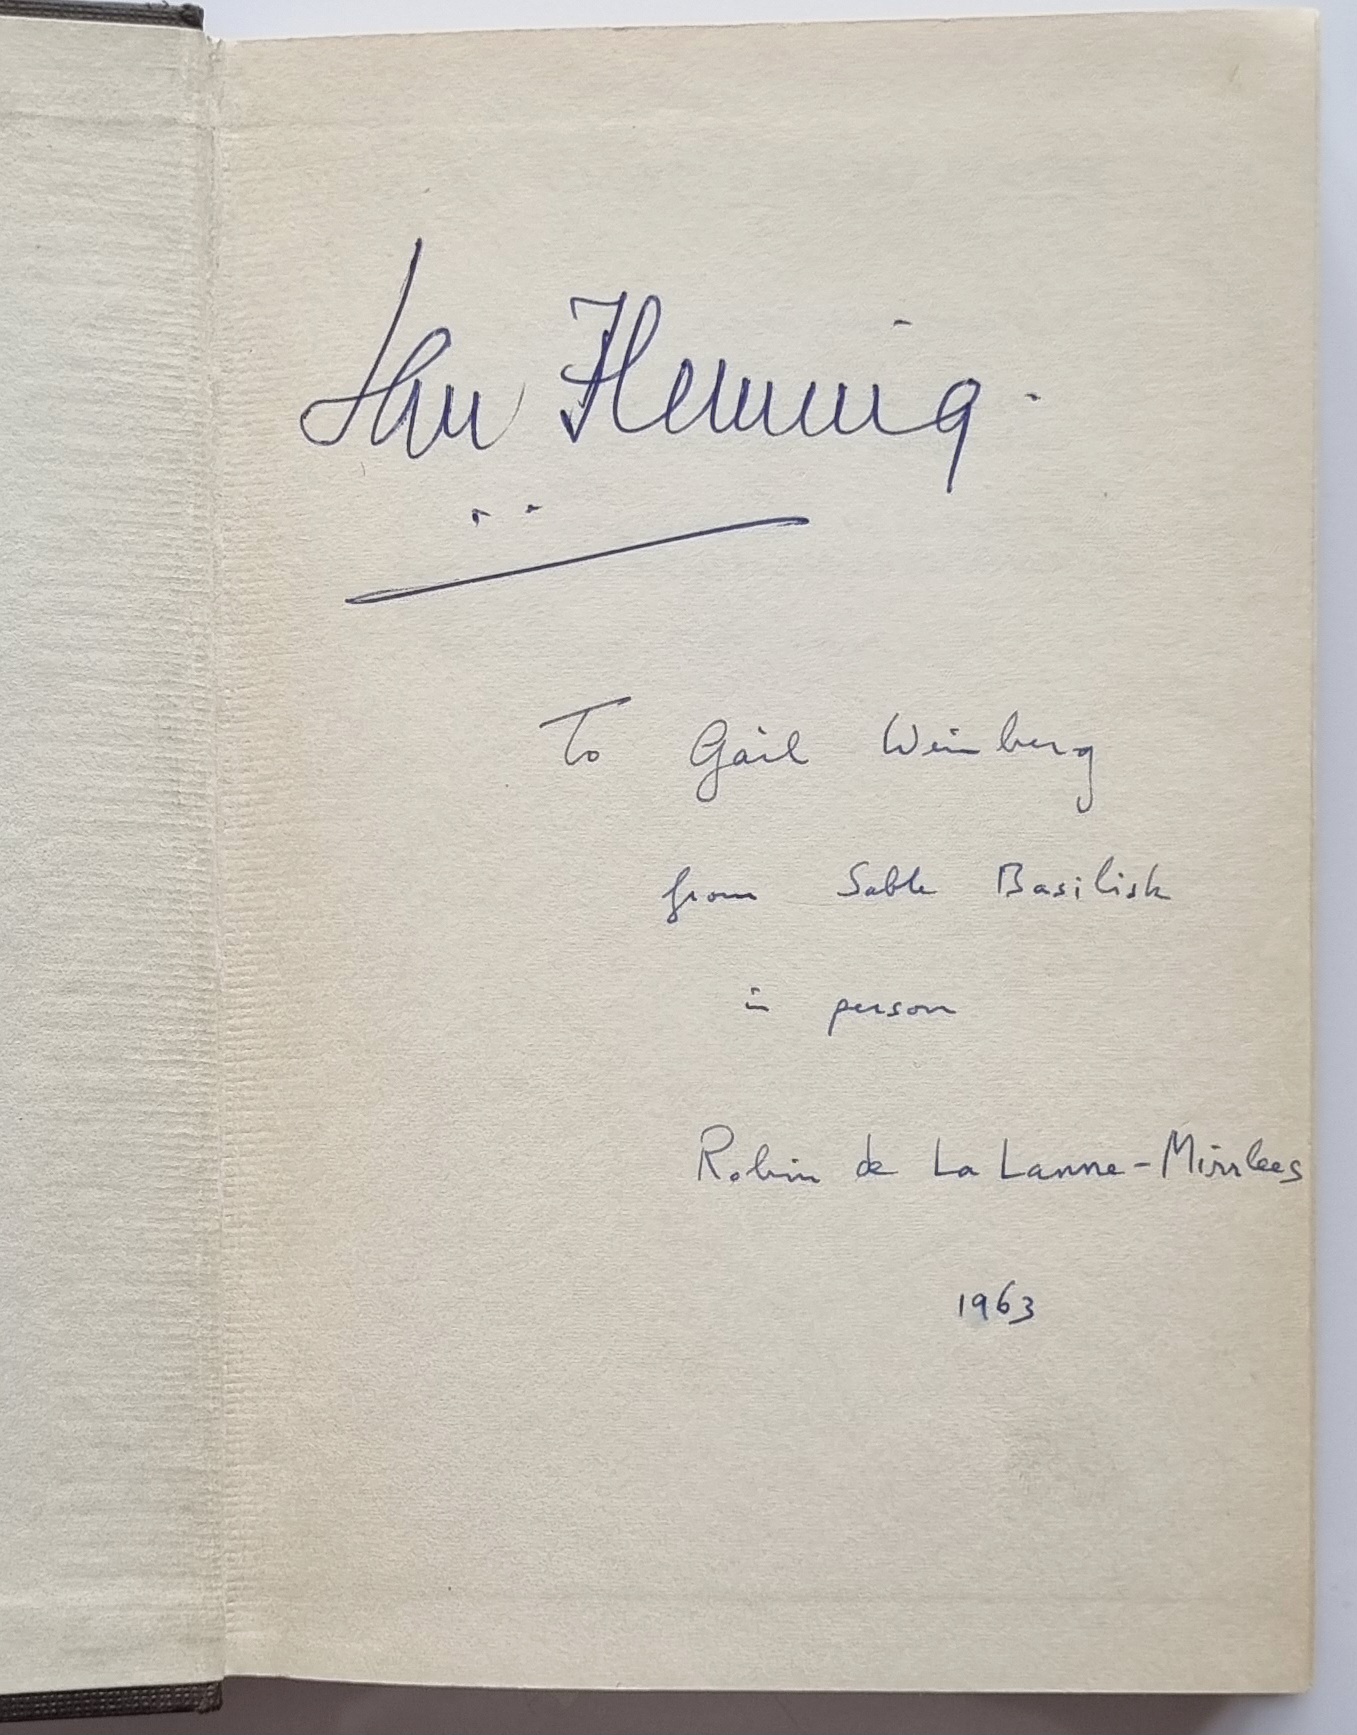 Ian Fleming.
To Gail Weinberg
from Sable Basilisk
in person
Robin de La Lanne-Mirrlees
1963